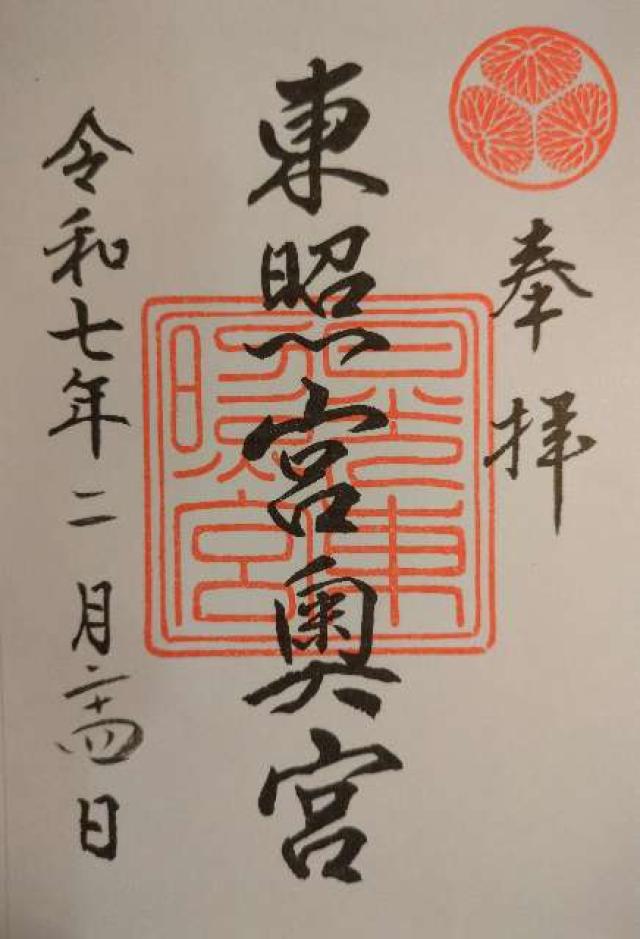 奉拝
東照宮奥宮
日光東照宮
令和七年二月二十四日